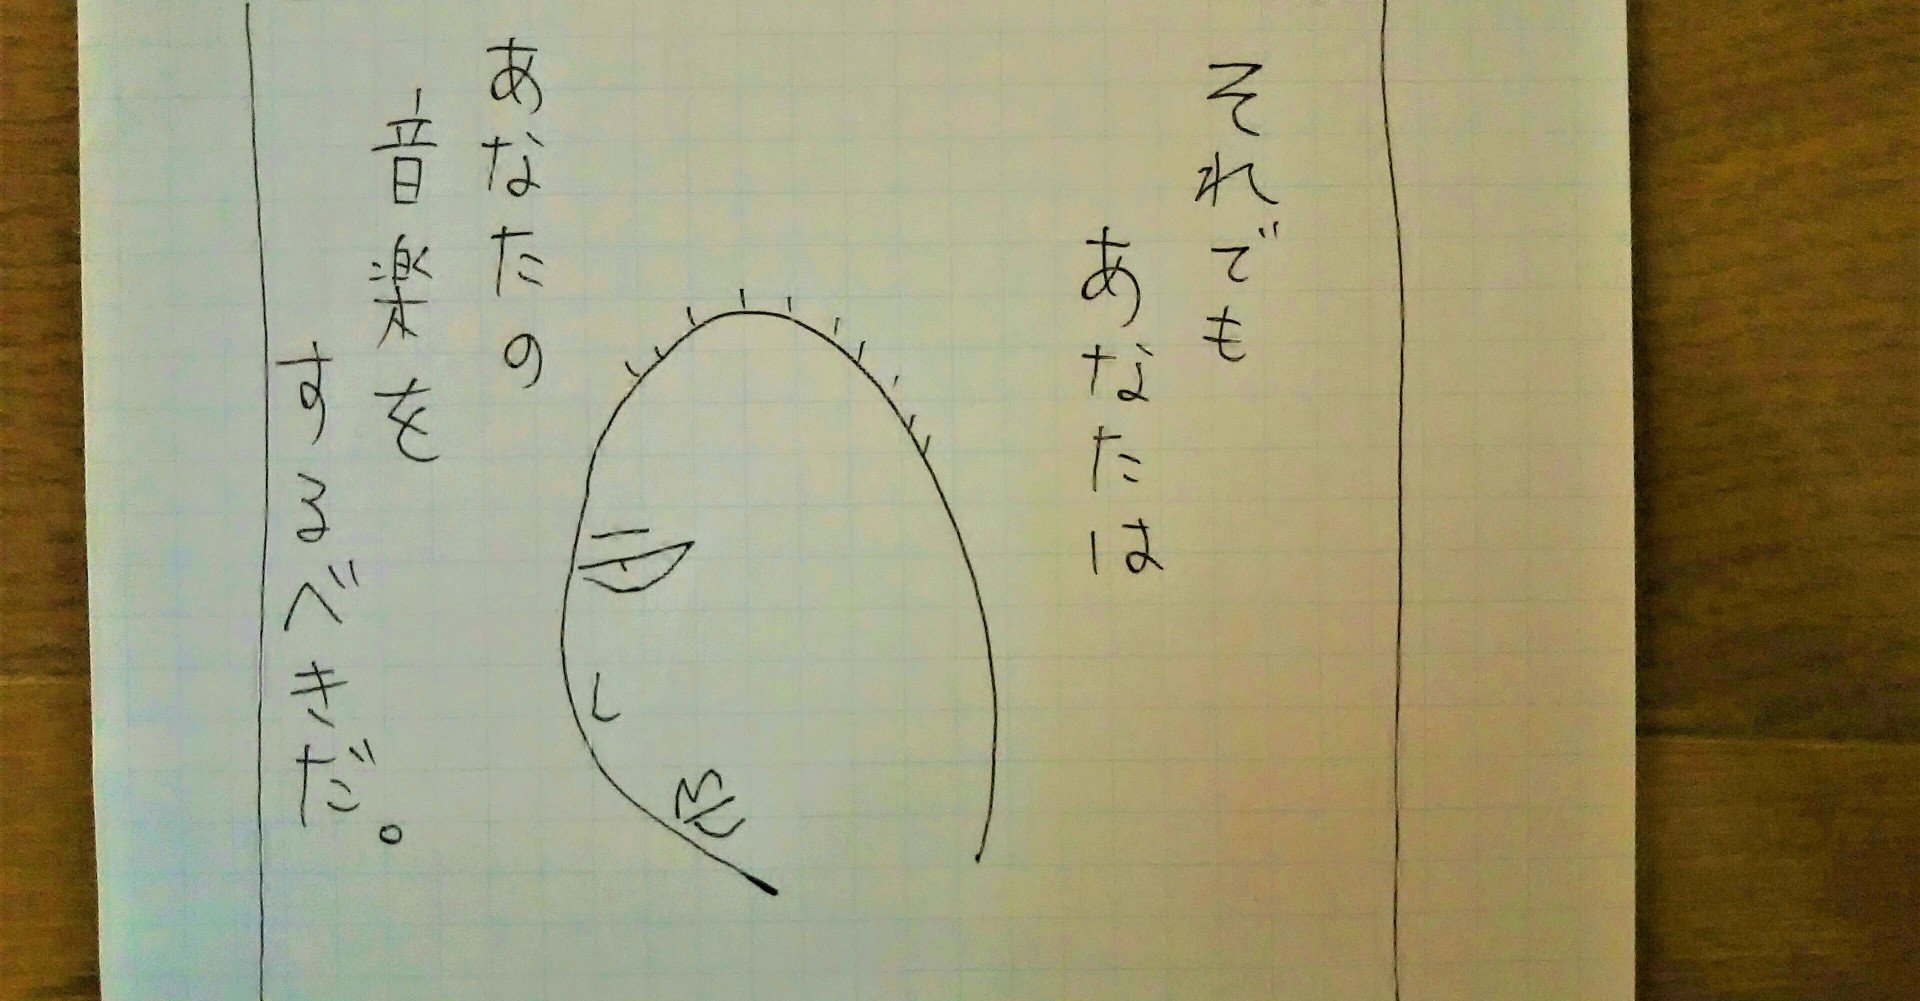 それでも
あなたは
あなたの
音楽を
するべきだ。